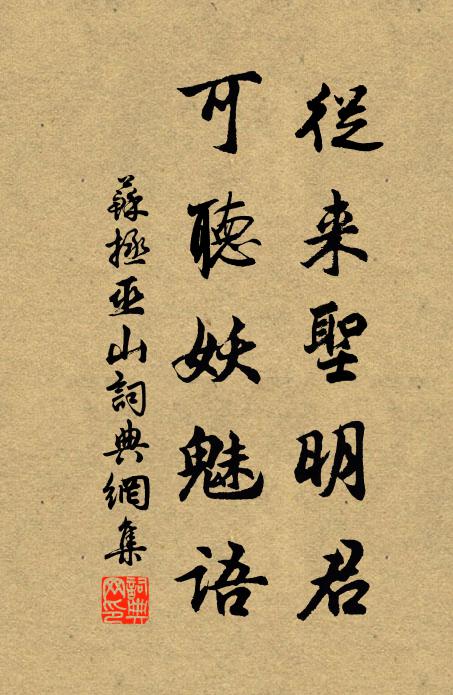 從来聖明君
可聽妖魅語
蘇拯巫山詞典網集
詞典网印